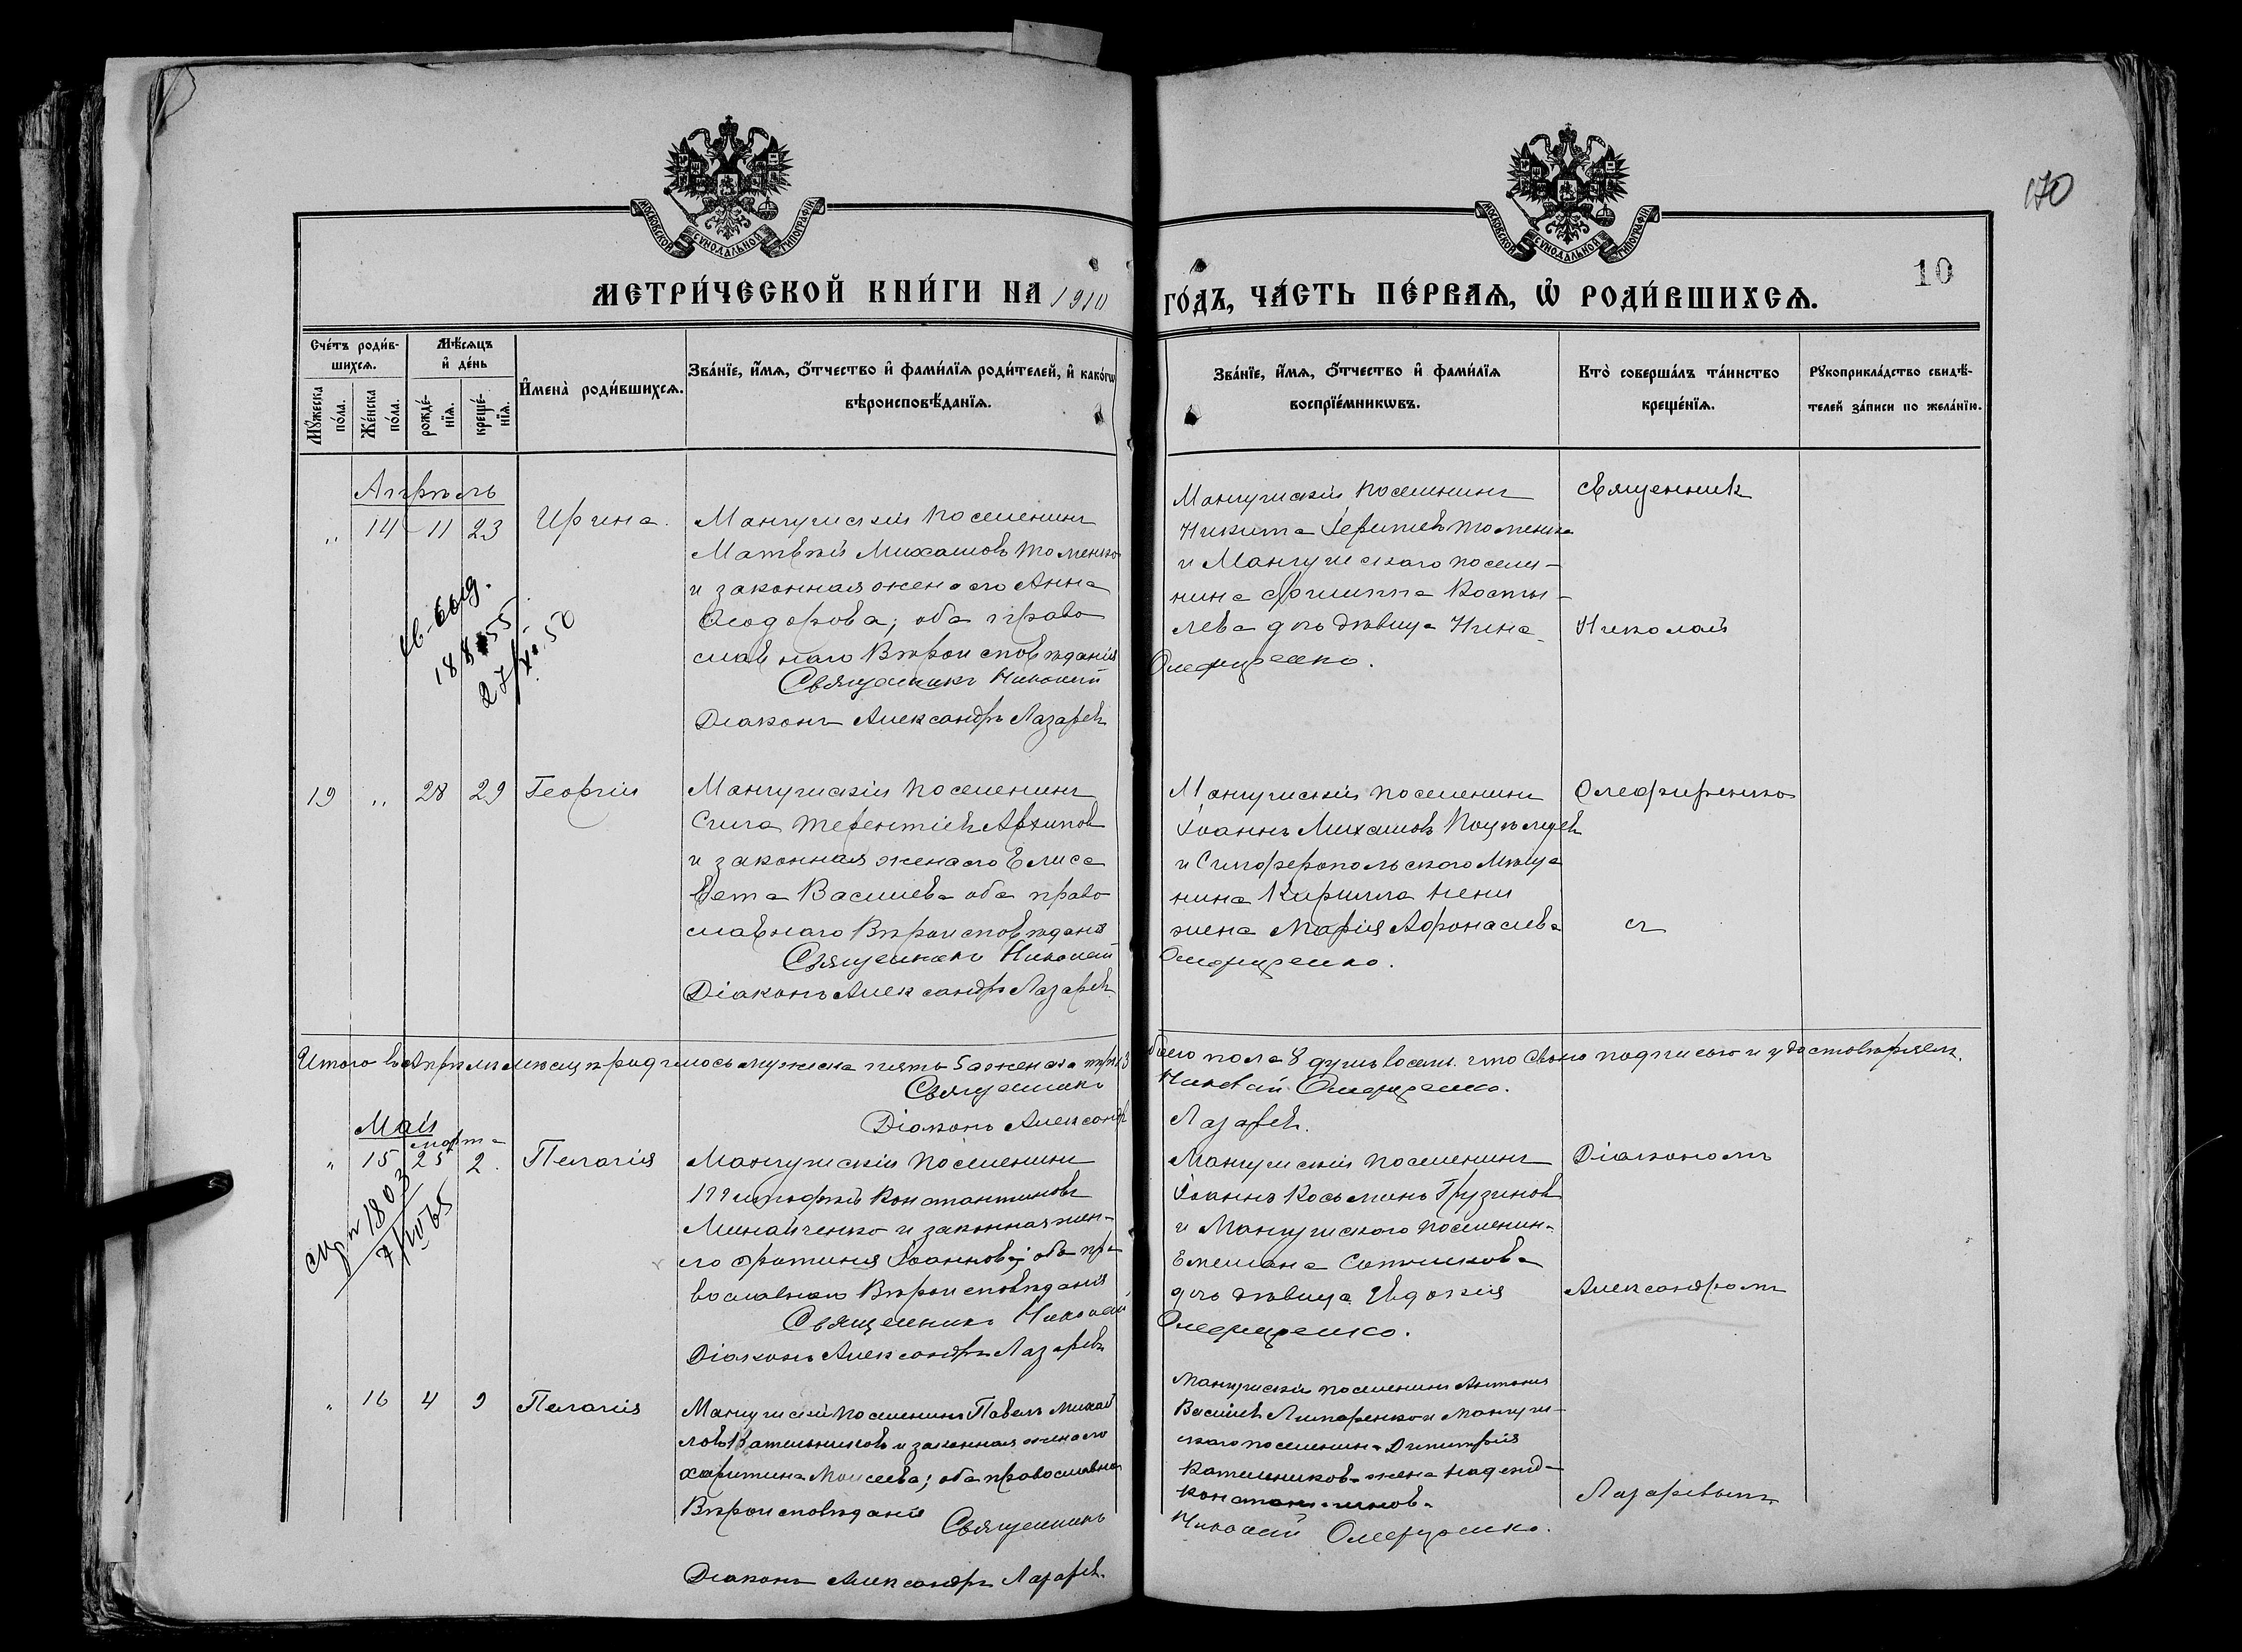 170
МОСКОВСКОЙ СѴНОДАЛЬНОЙ ТИПОГРАФІИ
МОСКОВСКОЙ СѴНОДАЛЬНОЙ ТИПОГРАФІИ
10
МЕТРИ́ЧЕСКОЙ КНИ́ГИ НА 1910
ГО́ДЪ, ЧА́СТЬ ПЕ́РВАѦ, Ѡ҆ РОДИ́ВШИХСѦ.
Сче́тъ роди́в-
шихсѧ.
Мꙋ́жеска по́ла.
Же́нска по́ла.
Мѣ́сѧцъ
и҆ де́нь
рожде́-нїѧ.
креще́-нїѧ.
И҆мена̀ роди́вшихсѧ.
Зва́нїе, и҆́мѧ, ѻ҆́тчество и҆ фами́лїѧ роди́телей, и҆ како́гѡ
вѣроисповѣ́данїѧ.
Зва́нїе, и҆́мѧ, ѻ҆́тчество и҆ фами́лїѧ
воспрїе́мникѡвъ.
Кто̀ соверша́лъ та́инство
креще́нїѧ.
Рꙋкоприкла́дство свидѣ́-
телей за́писи по жела́нїю.
Апрѣль
" 14 11 23 Ирина.
Мангушскій поселенинъ
Матвѣй Михаиловъ Томенко
и законная жена его Анна
Ѳеодорова; оба право
славнаго Вѣроисповѣданія
Священникъ Николай
Діаконъ Александръ Лазаревъ
Мангушскій поселенинъ
Никита Томенко
и Мангушскаго поселе-
нина Филиппа Косты-
лева дочь дѣвица Нина
Олефиренко.
Священник
Николай
18855
27/
50
19 " 28 29 Георгій
Мангушскій поселенинъ
Сила Терентіевъ Архипов
и законная жена его Елиса
вета Васильева оба право
славнаго Вѣроисповѣданія
Священникъ Николай
Діаконъ Александръ Лазаревъ
Мангушскій поселенинъ
Іоаннъ Михаиловъ
и Симферопольскаго Мѣща
нина Кирилла
жена Марія Афонасиева
Олефиренко.
Олефиренко
съ
Итого въ Апрѣлѣ мѣсяцѣ родилось мужска пять 5 а женска три 3
обоего пола 8 душъ восемь. что своею подписью и удостовѣряемъ.
Священникъ Николай Олефиренко.
Діаконъ Александръ Лазаревъ.
Май
марта
" 15 25 2. Пелагія
Мангушскій поселенинъ
Тимофей Константиновъ
Минайченко и законная жен-
его Фотинія Іоаннова; оба пра
вославнаго Вѣроисповѣданія
Священникъ Николай
Діаконъ Александръ Лазаревъ
Мангушскій поселенинъ
Іоаннъ Косьминъ Грузинов
и Мангушскаго поселенин-
Емелиана Сотникова
дочь дѣвица Евдокія
Олефиренко.
Діакономъ
Александромъ
1803
" 16 4 9 Пелагія
Мангушскій поселенинъ Павелъ Михай
ловъ Котельниковъ и законная жена его
Харитина Моисеева; оба православна
Вѣроисповѣданія
Священникъ
Діаконъ Александръ Лазаревъ.
Мангушскій поселенинъ Антоній
Васильевъ Литаренко и Мангуш-
скаго поселенина Димитрія
Котельникова жена Надежд-
Константинова
Николай Олефиренко.
Лазаревымъ